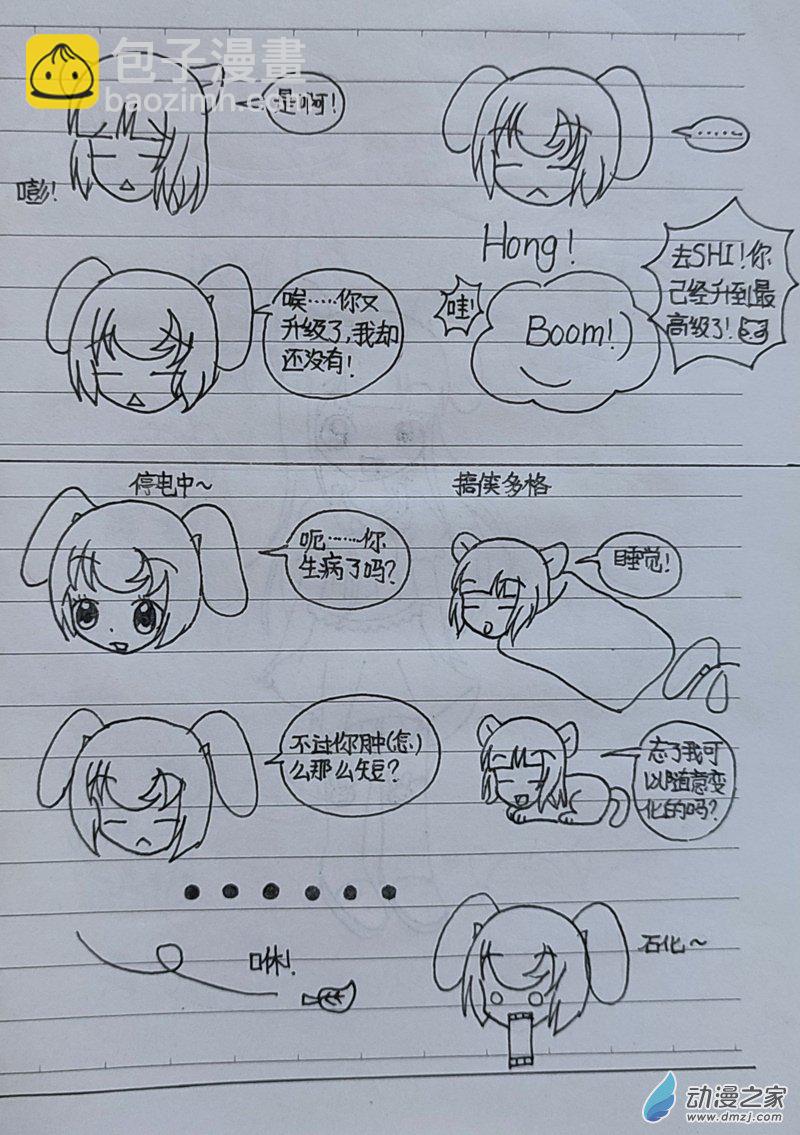 包子漫畫
baozimh.com
是啊！
……
嘭！
Hong！
唉……你又
升级了，我却
还没有！
哇！
Boom！
去SHI！你
已经升到最
高级了！
停电中～
搞笑多格
呃……你
生病了吗？
睡觉！
不过你肿(怎)
么那么短？
忘了我可
以随意变
化的吗？
咻！
石化～
动漫之家
www.dmzj.com